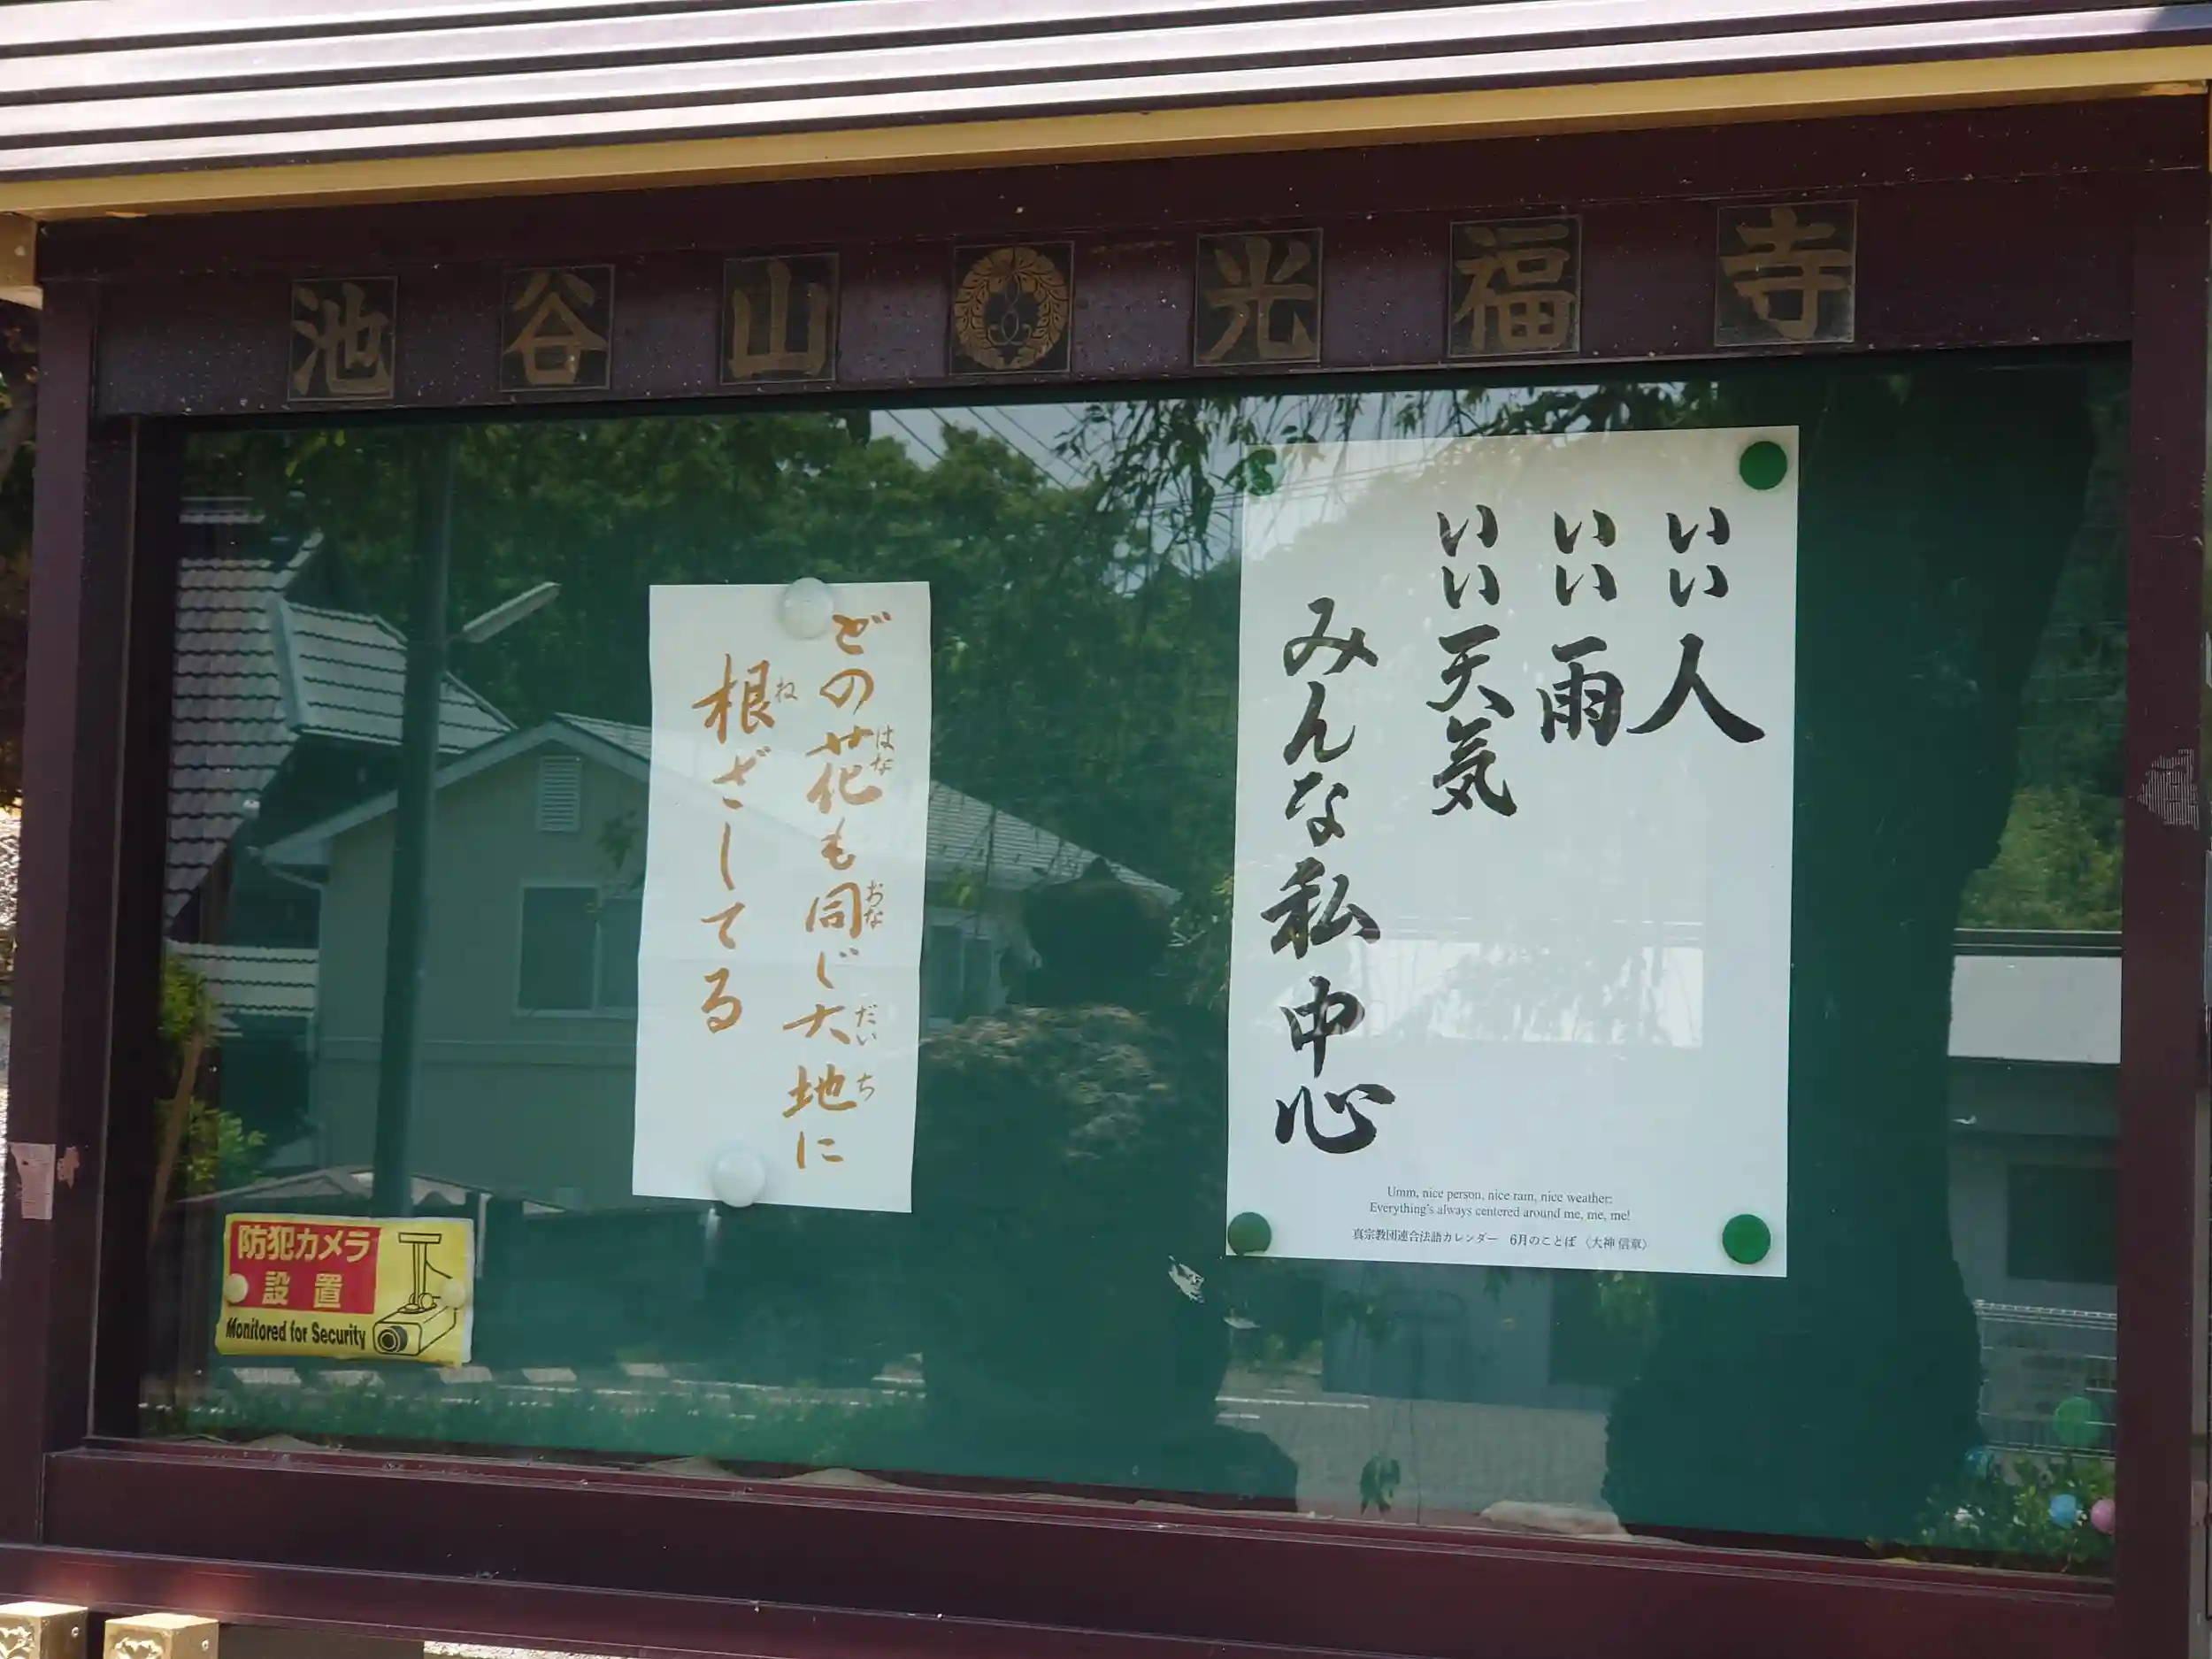 池谷山 光福寺
いい人
いい雨
いい天気
みんな私中心
Umm, nice person, nice rain, nice weather:
Everything's always centered around me, me, me!
真宗教団連合法語カレンダー 6月のことば 〈大神 信章〉
どの花も同じ大地に
はな おな だい ち
根ざしてる
ね
防犯カメラ
設置
Monitored for Security